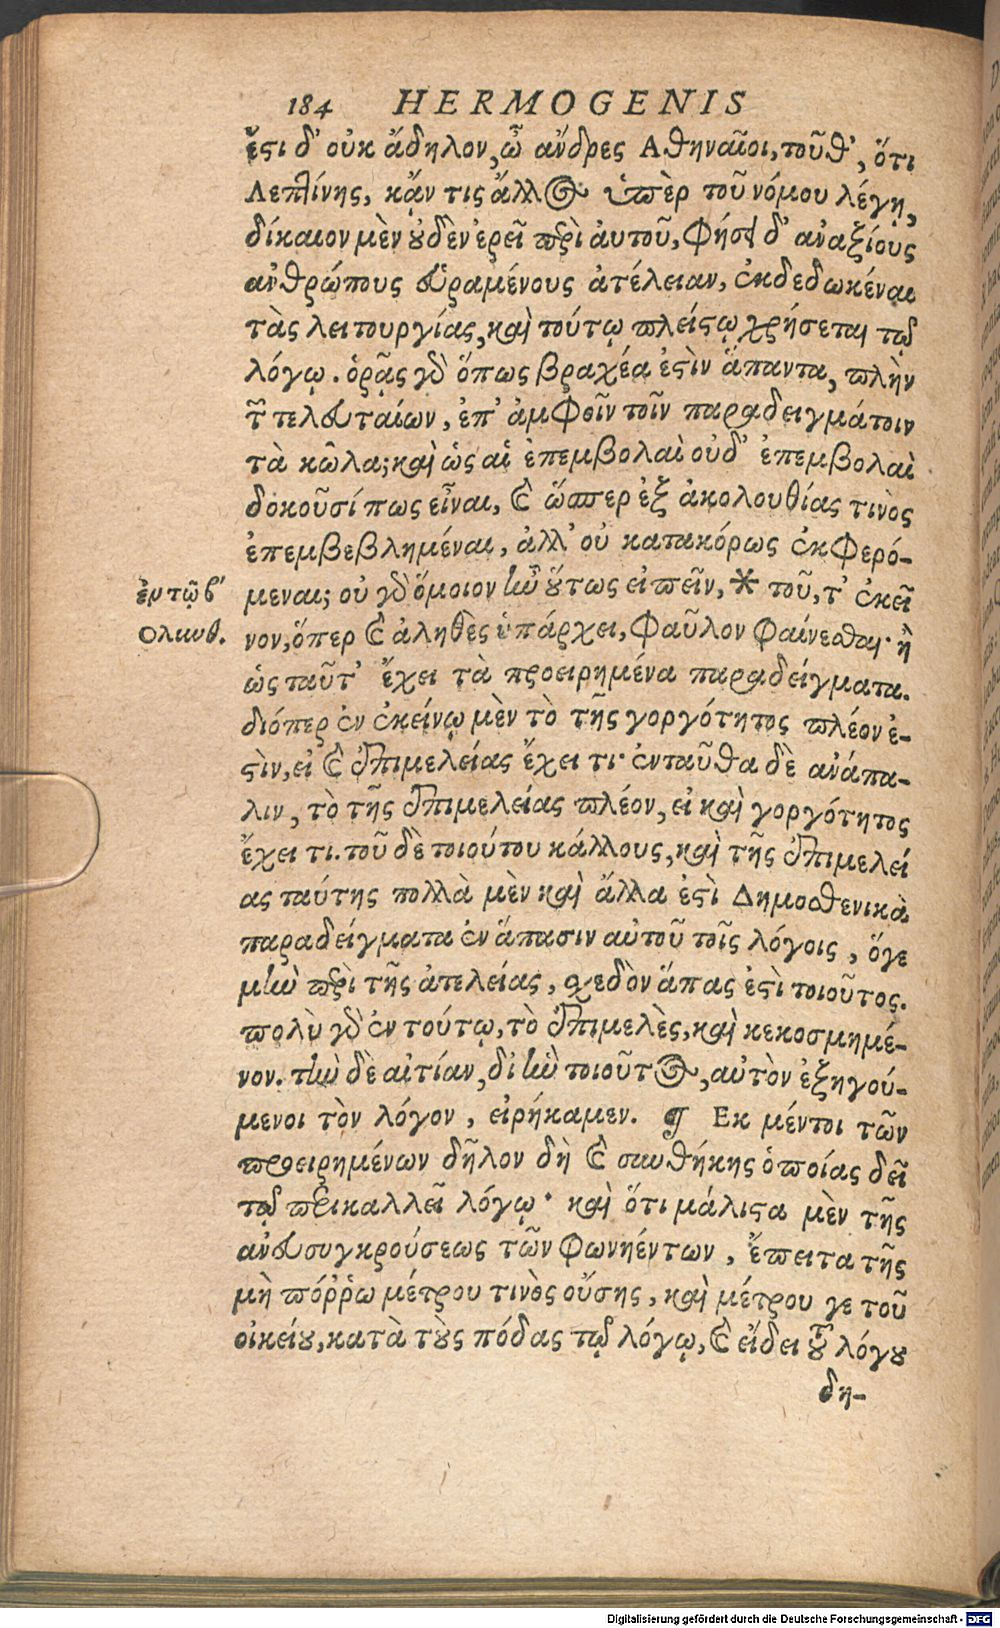 184 HERMOGENIS
ἔστι δ' οὐκ ἄδηλον, ὦ ἄνδρες Αθηναῖοι, τοῦθ', ὅτι
Λεπτίνης, κἄν τις ἄλλος ὑπὲρ τοῦ νόμου λέγῃ,
δίκαιον μὲν οὐδὲν ἐρεῖ περὶ αὐτοῦ, φήσει δ' ἀναξίους
ἀνθρώπους εὑραμένους ἀτέλειαν, ἐκδεδωκέναι
τὰς λειτουργίας, καὶ τούτῳ πλείστῳ χρήσεται τῷ
λόγῳ. ὁρᾷς γὰρ ὅπως βραχέα ἐστὶν ἅπαντα, πλὴν
τῶν τελευταίων, ἐπ' ἀμφοῖν τοῖν παραδειγμάτοιν
τὰ κῶλα; καὶ ὡς αἱ ἐπεμβολαὶ οὐδ' ἐπεμβολαὶ
δοκοῦσί πως εἶναι, καὶ ὥσπερ ἐξ ἀκολουθίας τινὸς
ἐπεμβεβλημέναι, ἀλλ' οὐ κατακόρως ἐκφερό-
μεναι; οὐ γὰρ ὅμοιον ἦν οὕτως εἰπεῖν, * τοῦ, τ' ἐκεῖ
νον, ὅπερ καὶ ἀληθὲς ὑπάρχει, φαῦλον φαίνεσθαι· ἢ
ὡς ταῦτ' ἔχει τὰ προειρημένα παραδείγματα.
διόπερ ἐν ἐκείνῳ μὲν τὸ τῆς γοργότητος πλέον ἐ-
στὶν, εἰ καὶ ἐπιμελείας ἔχει τι· ἐνταῦθα δὲ ἀνάπα-
λιν, τὸ τῆς ἐπιμελείας πλέον, εἰ καὶ γοργότητος
ἔχει τι. τοῦ δὲ τοιούτου κάλλους, καὶ τῆς ἐπιμελεί
ας ταύτης πολλὰ μὲν καὶ ἄλλα ἐστὶ Δημοσθενικὰ
παραδείγματα ἐν ἅπασιν αὐτοῦ τοῖς λόγοις, ὅγε
μὴν περὶ τῆς ἀτελείας, σχεδὸν ἅπας ἐστὶ τοιοῦτος.
πολὺ γὰρ ἐν τούτῳ, τὸ ἐπιμελὲς, καὶ κεκοσμημέ-
νον. τὴν δὲ αἰτίαν, δι' ἣν τοιοῦτος, αὐτὸν ἐξηγού-
μενοι τὸν λόγον, εἰρήκαμεν. ¶ Εκ μέντοι τῶν
προειρημένων δῆλον δὴ καὶ συνθήκης ὁποίας δεῖ
τῷ περικαλλεῖ λόγῳ· καὶ ὅτι μάλιστα μὲν τῆς
ἄνευ συγκρούσεως τῶν φωνηέντων, ἔπειτα τῆς
μὴ πόῤῥω μέτρου τινὸς οὔσης, καὶ μέτρου γε τοῦ
οἰκείου, κατὰ τοὺς πόδας τῷ λόγῳ, καὶ εἴδει τοῦ λόγου
δη-
ἐν τῷ β'
Ολυνθ.